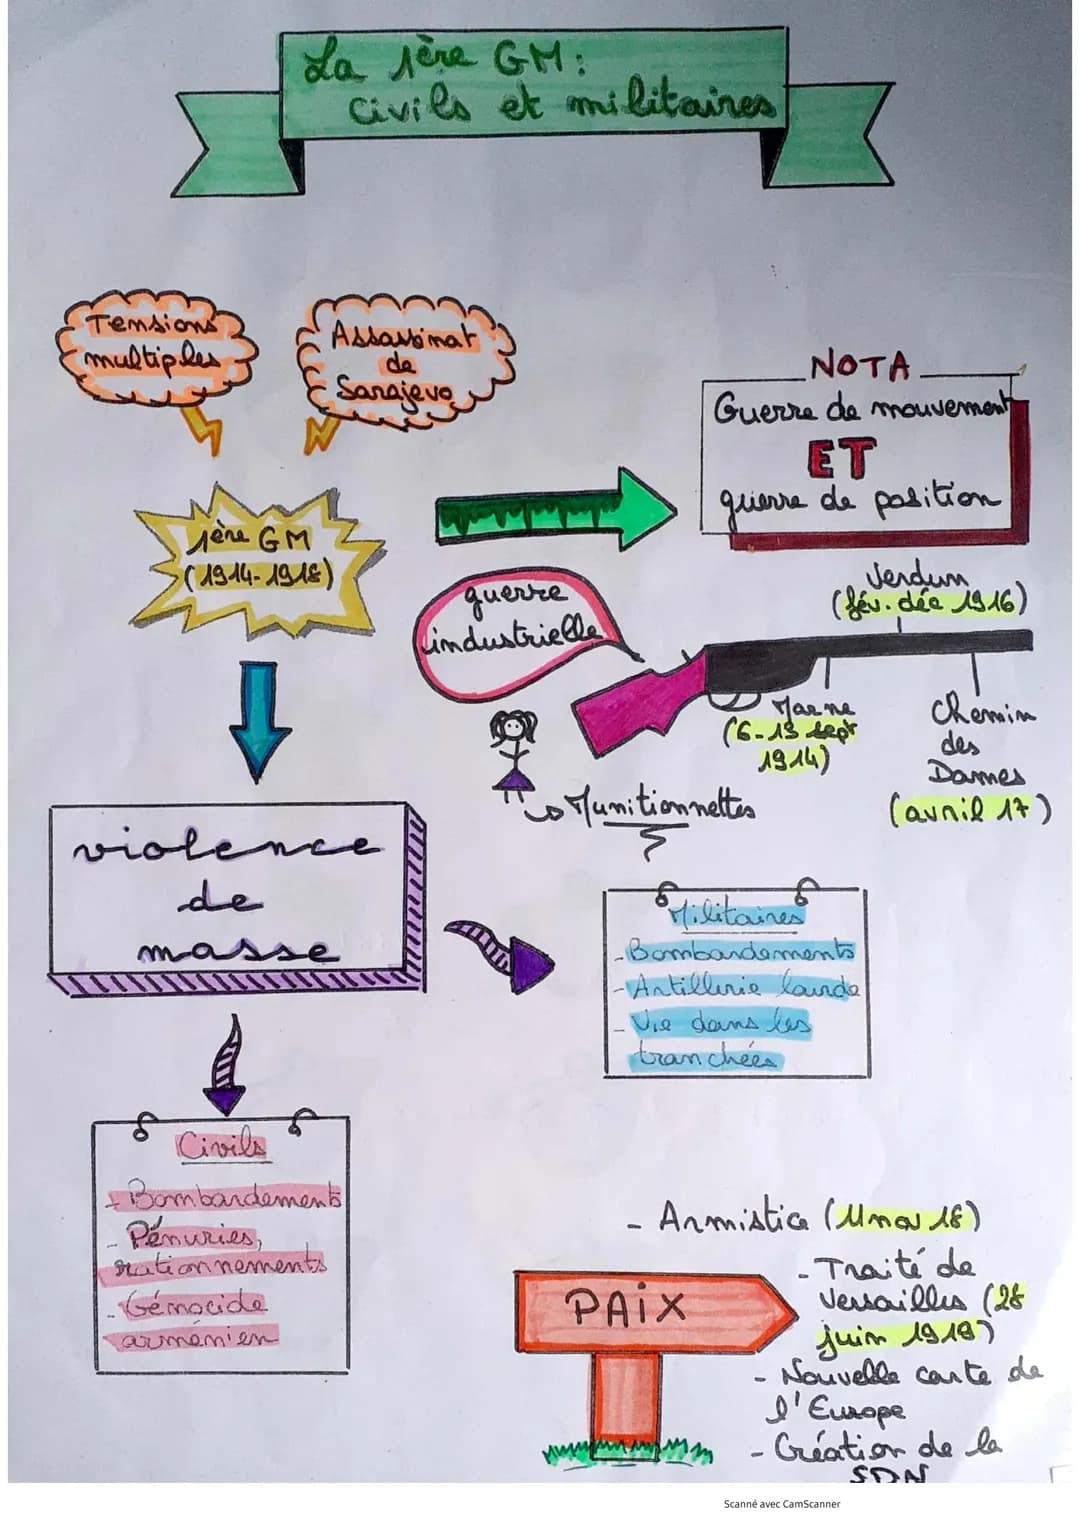 La 1ère GM:
civils et militaires
Tensions
multiples
Assassinat
de
Sarajevo
NOTA
Guerre de mouvement
ET
guerre de position
1ère GM
(1914-1918)
guerre
industrielle
Verdun
(fév. déc 1916)
Marne
(6-13 sept
1914)
Chemin
des
Dames
(avril 17)
Munitionnettes
violence
de
masse
Militaires
- Bombardements
- Artillerie lourde
- Vie dans les
tranchées
Civils
- Bombardements
- Pénuries,
rationnements
- Génocide
arménien
- Armistice (11 nov 18)
PAIX
- Traité de
Versailles (28
juin 1919)
- Nouvelle carte de
l'Europe
- Création de la
SDN
Scanné avec CamScanner